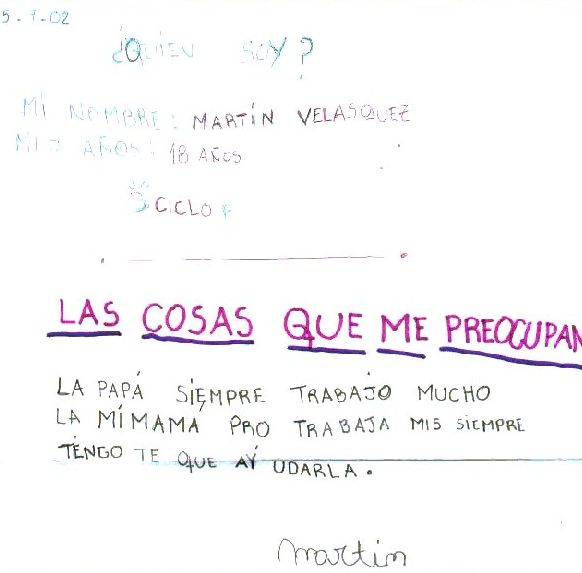 5-7-02
¿QUIEN SOY?
MI NOMBRE: MARTÍN VELASQUEZ
MIS AÑOS: 18 AÑOS
3 CICLO
LAS COSAS QUE ME PREOCUPAN
LA PAPÁ SIEMPRE TRABAJO MUCHO
LA MÍMAMÁ PRO TRABAJA MIS SIEMPRE
TENGO TE QUE AÝ UDARLA.
martin